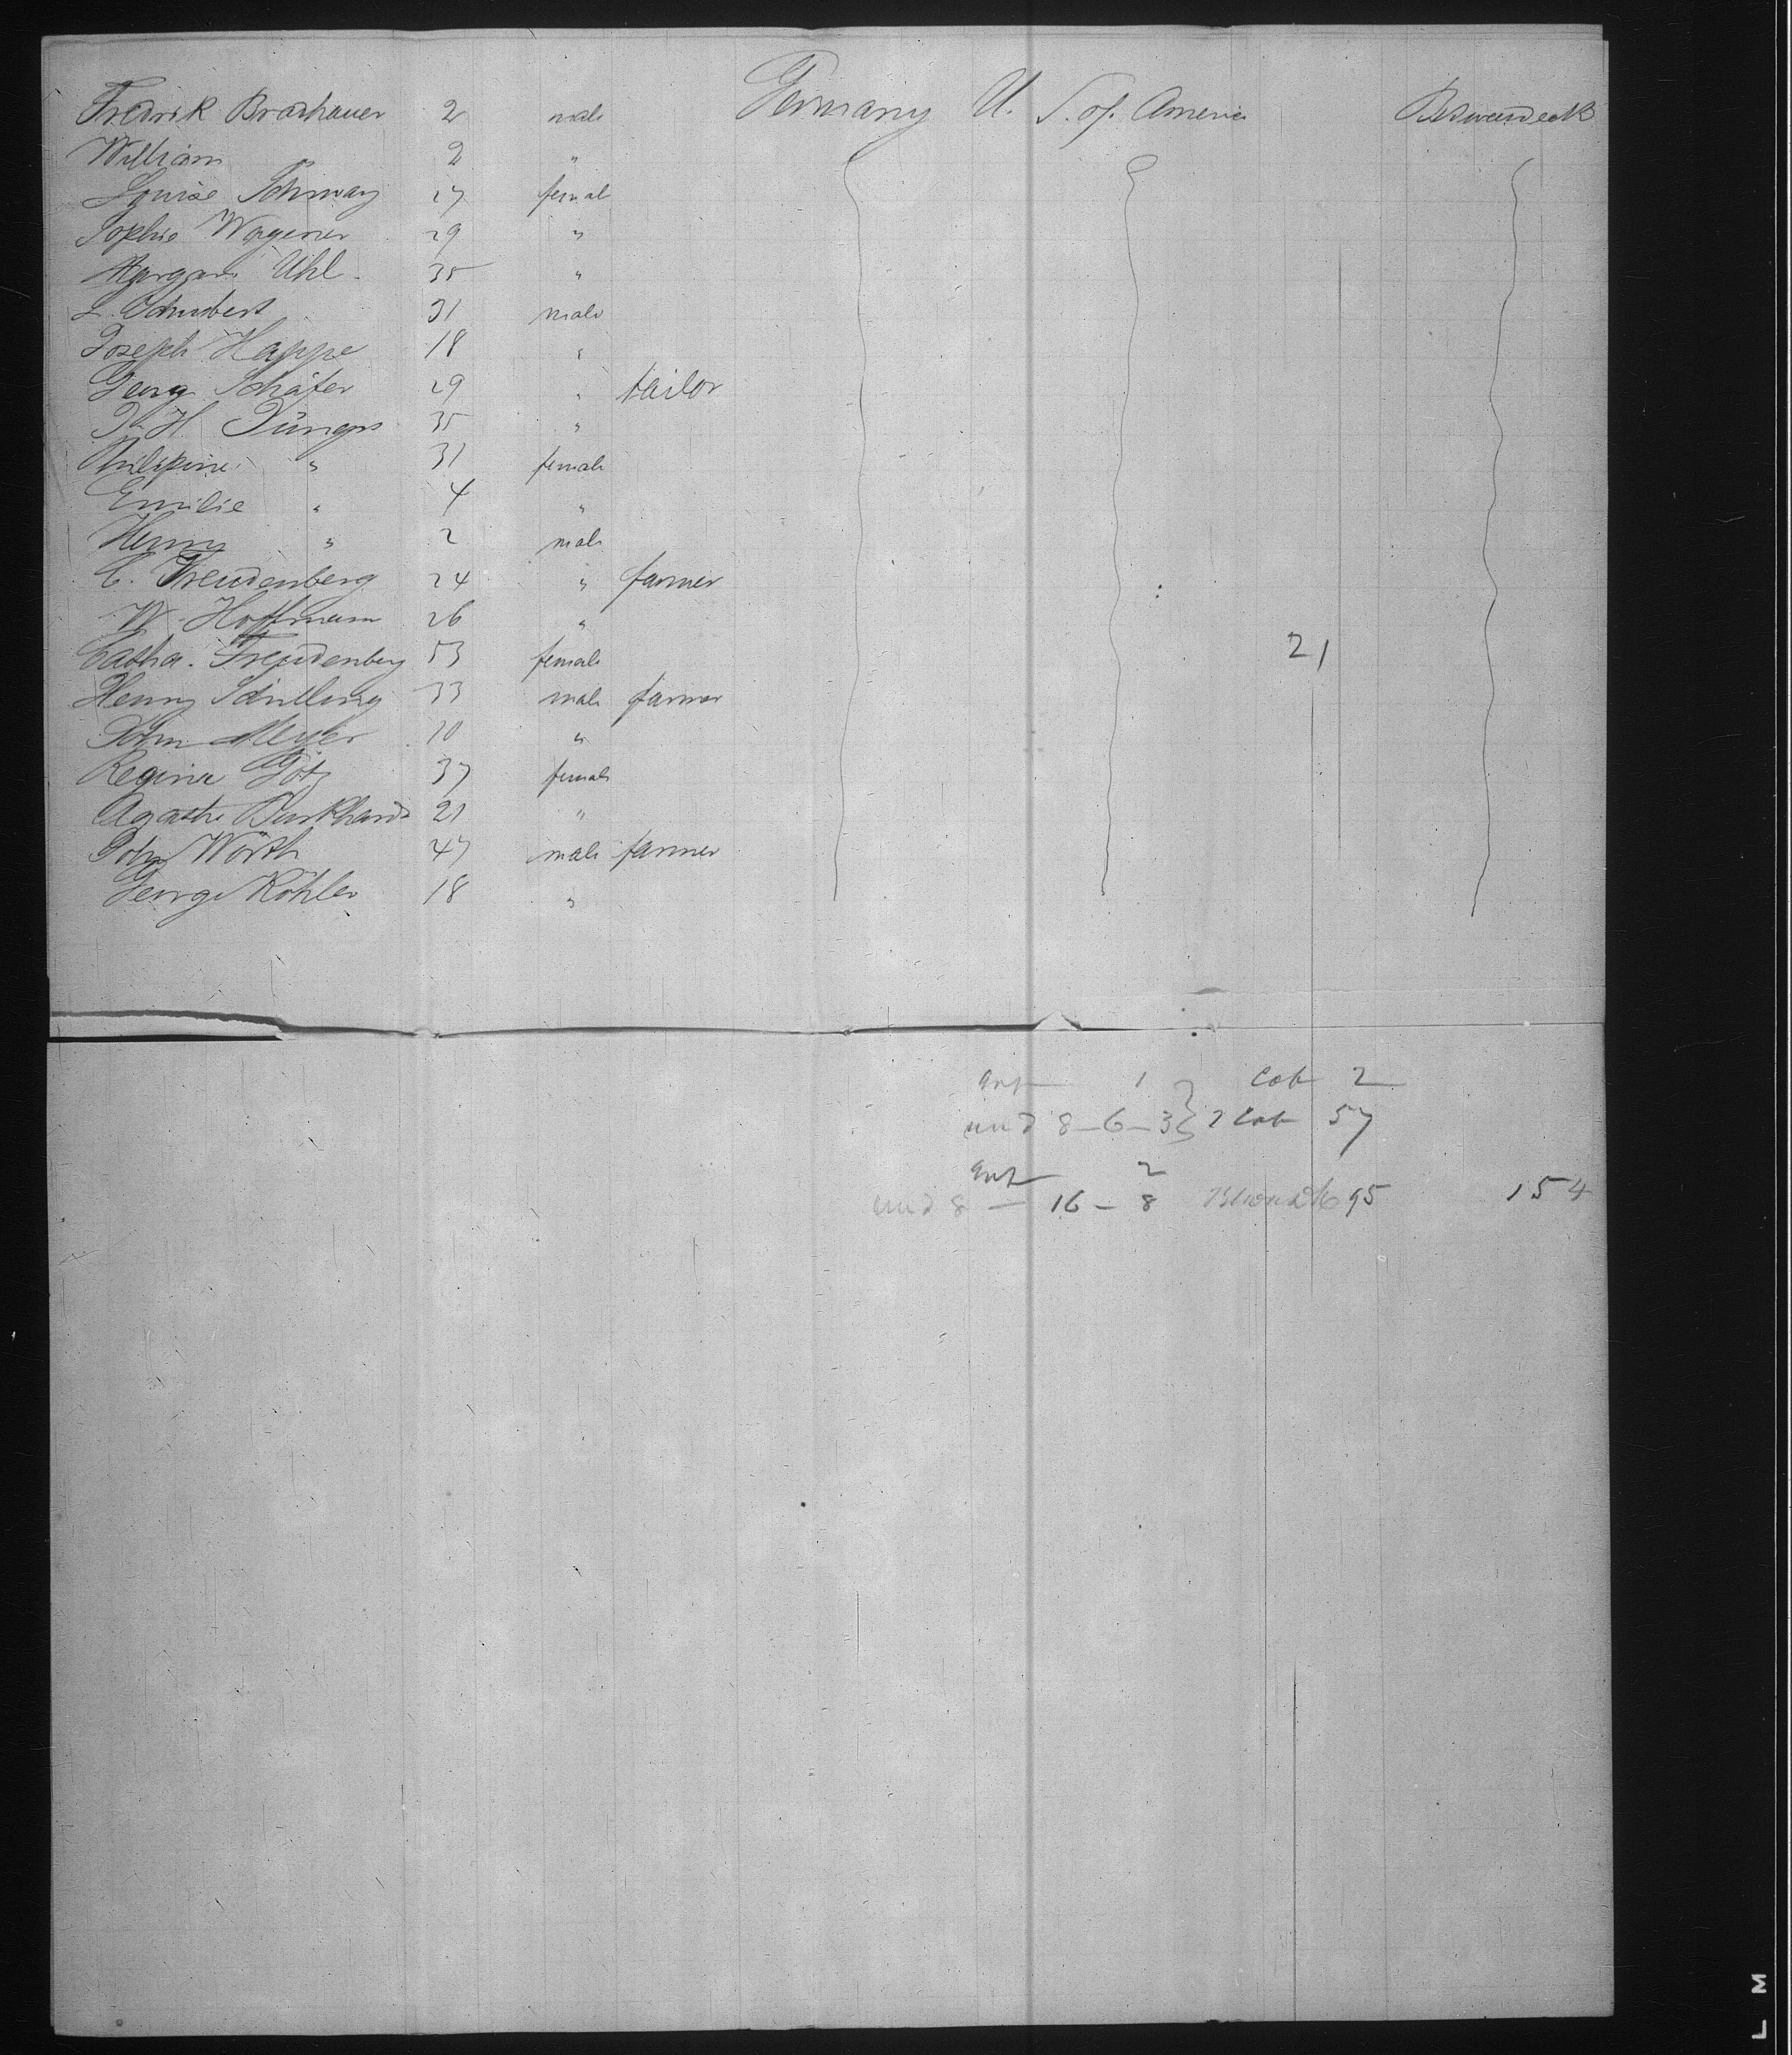 Fredrik Brodhauer 2 male Germany U. S. of. America Betweendeck
William 2 "
Louise Schwarz 27 female
Sophie Wagener 29 "
Margar. Uhl. 35 "
L. Schubert 31 male
Joseph Happe 18 "
Georg Schäfer 29 " tailor
H. Jüngs 35 "
Philipine " 31 female
Emilie " 4 "
Henry " 2 male
C. Freudenberg 24 " farmer
W. Hoffmann 26 "
Catha. Freudenberg 53 female 21
Henry Schilling 33 male farmer
John Meyer 10 "
Regina Götz 37 female
Agathe Burkhardt 21 "
John Wörth 47 male farmer
George Köhler 18 "
1 Cab 2
und 8-6-3 2 Cab 57
2
und 8 - 16 - 8 95 154
L M